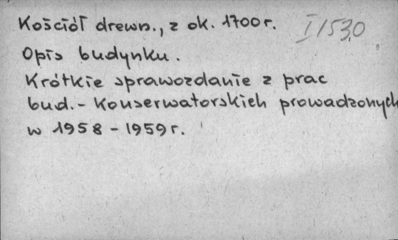 Kościół drewn., z ok. 1700 r. I/1530
Opis budynku.
Krótkie sprawozdanie z prac
bud.-konserwatorskich prowadzonych
w 1958 - 1959 r.